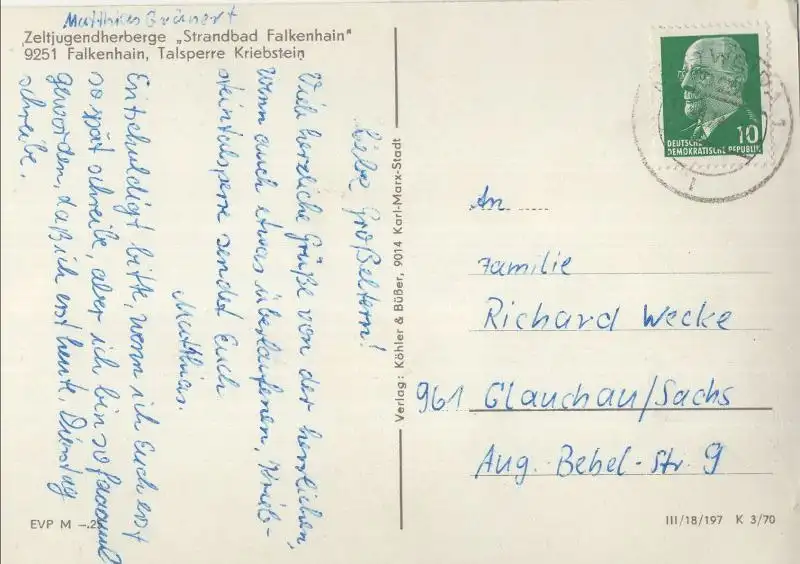 Matthias Grünert
Zeltjugendherberge „Strandbad Falkenhain"
9251 Falkenhain, Talsperre Kriebstein
Liebe Großeltern!
Viele herzliche Grüße von der herrlichen,
wenn auch etwas überlaufenen, Krieb-
steintalsperre sendet Euch
Matthias.
Entschuldigt bitte, wenn ich Euch erst
so spät schreibe, aber ich bin so
geworden, daß ich erst heute, Dienstag
schreibe.
EVP M –.25
Verlag: Köhler & Büßer, 9014 Karl-Marx-Stadt
10
DEUTSCHE
DEMOKRATISCHE REPUBLIK
An
Familie
Richard Wecke
961 Glauchau/Sachs
Aug.-Bebel-Str. 9
III/18/197 K 3/70